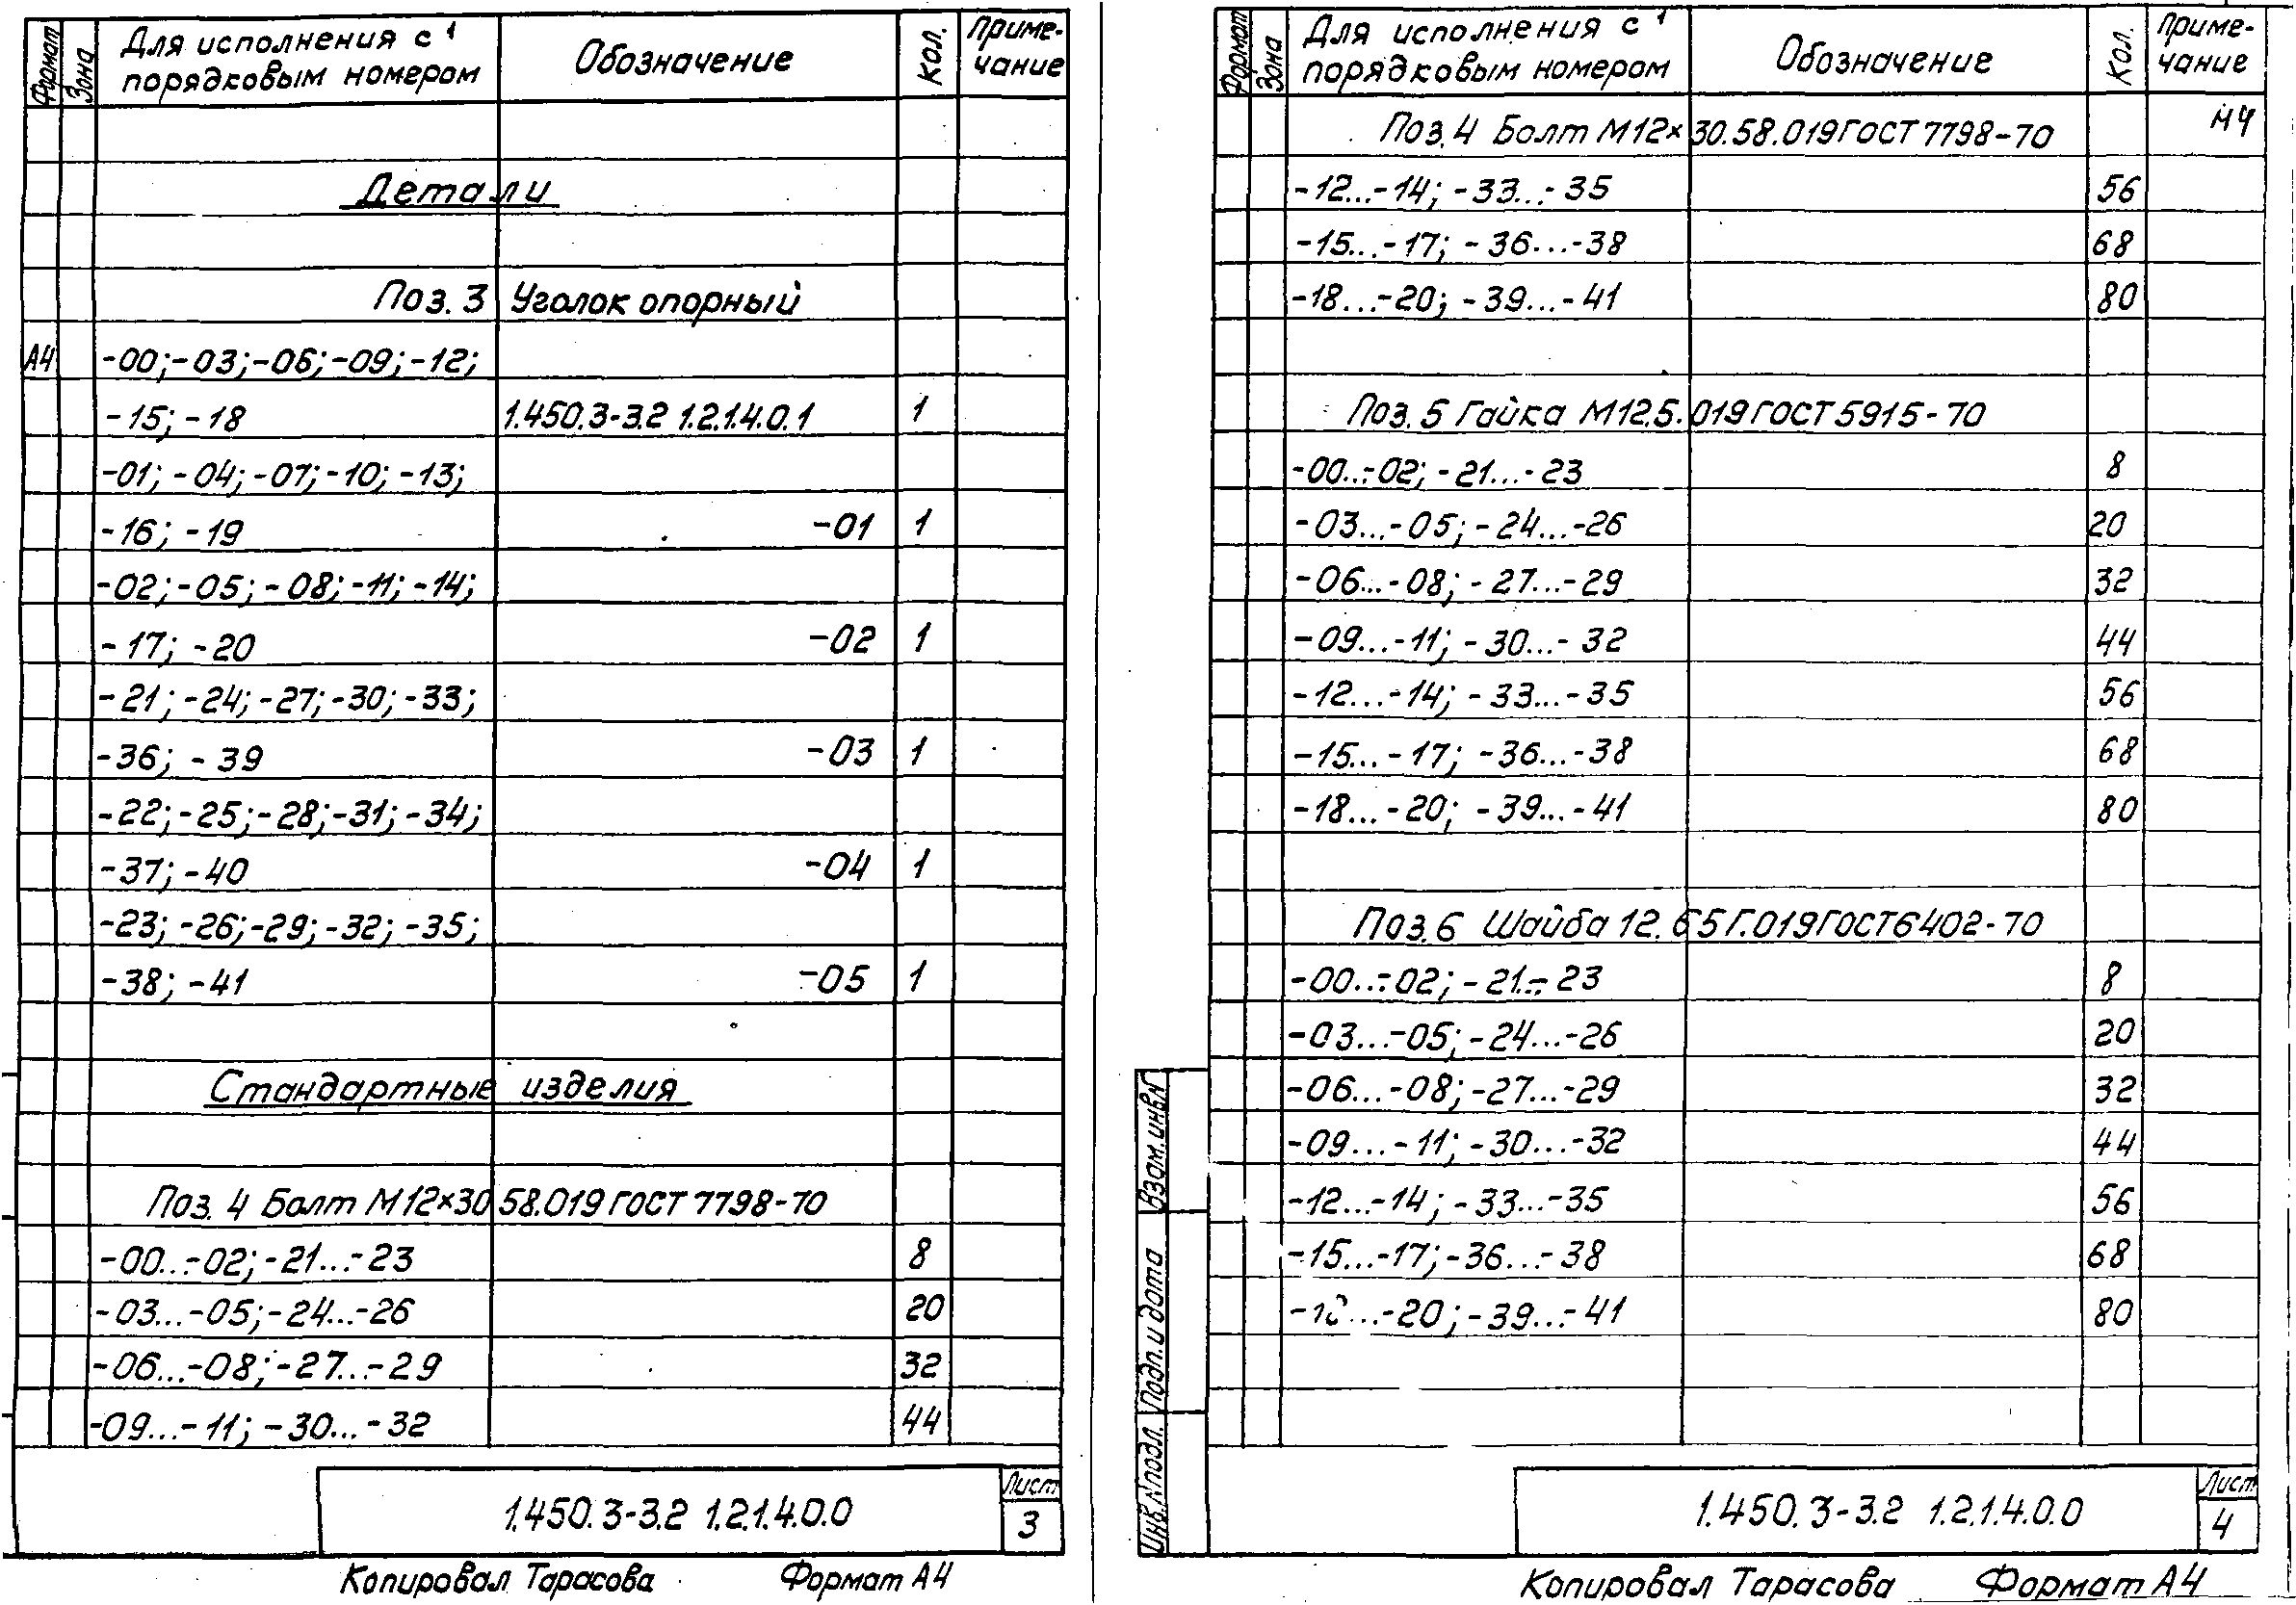 Формат
Зона
Для исполнения с
порядковым номером
Обозначение
Кол.
Приме-
чание
Детали
Поз. 3 Уголок опорный
А4 -00; -03; -06; -09; -12;
-15; -18 1.450.3-3.2 1.2.1.4.0.1 1
-01; -04; -07; -10; -13;
-16; -19 -01 1
-02; -05; -08; -11; -14;
-17; -20 -02 1
-21; -24; -27; -30; -33;
-36; -39 -03 1
-22; -25; -28; -31; -34;
-37; -40 -04 1
-23; -26; -29; -32; -35;
-38; -41 -05 1
Стандартные изделия
Поз. 4 Болт М12×30 58.019 ГОСТ 7798-70
-00...-02; -21...-23 8
-03...-05; -24...-26 20
-06...-08; -27...-29 32
-09...-11; -30...-32 44
1.450.3-3.2 1.2.1.4.0.0
Лист
3
Копировал Тарасова Формат А4
Формат
Зона
Для исполнения с
порядковым номером
Обозначение
Кол.
Приме-
чание
Поз. 4 Болт М12×30.58.019 ГОСТ 7798-70
-12...-14; -33...-35 56
-15...-17; -36...-38 68
-18...-20; -39...-41 80
Поз. 5 Гайка М12.5.019 ГОСТ 5915-70
-00...-02; -21...-23 8
-03...-05; -24...-26 20
-06...-08; -27...-29 32
-09...-11; -30...-32 44
-12...-14; -33...-35 56
-15...-17; -36...-38 68
-18...-20; -39...-41 80
Поз. 6 Шайба 12.65Г.019 ГОСТ 6402-70
-00...-02; -21...-23 8
-03...-05; -24...-26 20
-06...-08; -27...-29 32
-09...-11; -30...-32 44
-12...-14; -33...-35 56
-15...-17; -36...-38 68
-18...-20; -39...-41 80
Взам. инв. №
Подп. и дата
Инв. № подл.
1.450.3-3.2 1.2.1.4.0.0
Лист
4
Копировал Тарасова Формат А4